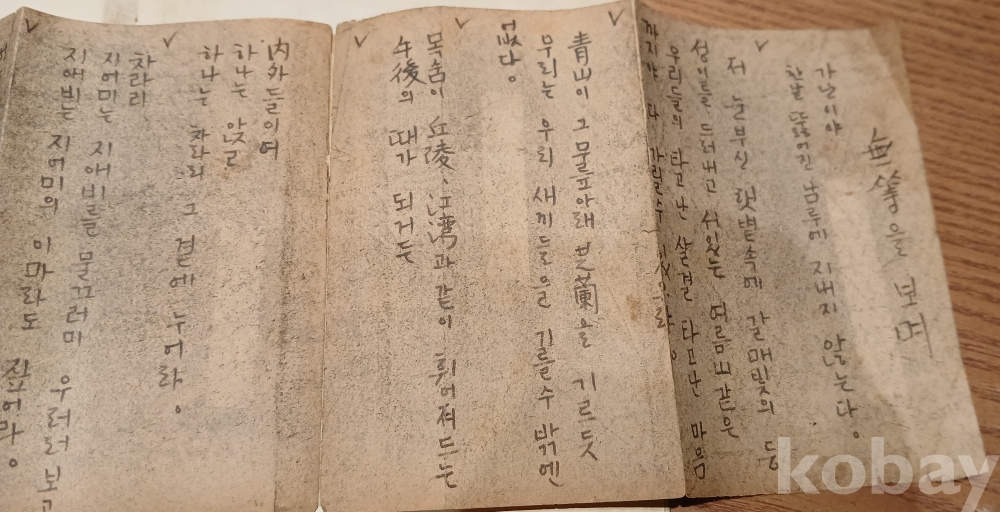 無等을 보며
가난이야
한낱 뚫어진 남루에 지내지 않는다。
저 눈부신 햇볕속에 갈매빛의 등
성이를 드러내고 서있는 여름山같은
우리들의 타고난 살결 타고난 마음
까지야 다 가릴수 있으랴。
靑山이 그 물프아래 芝蘭을 기르듯
우리는 우리 새끼들을 기를수 밖엔
없다。
목숨이 丘陵、江湾과같이 휘어져드는
午後의 때가 되거든
內外들이여
하나는 앉고
하나는 차라리 그 곁에 누어라。
차라리
지어미는 지애비를 물끄러미 우러러 보고
지애비는 지어미의 이마라도 짚어라。
kobay